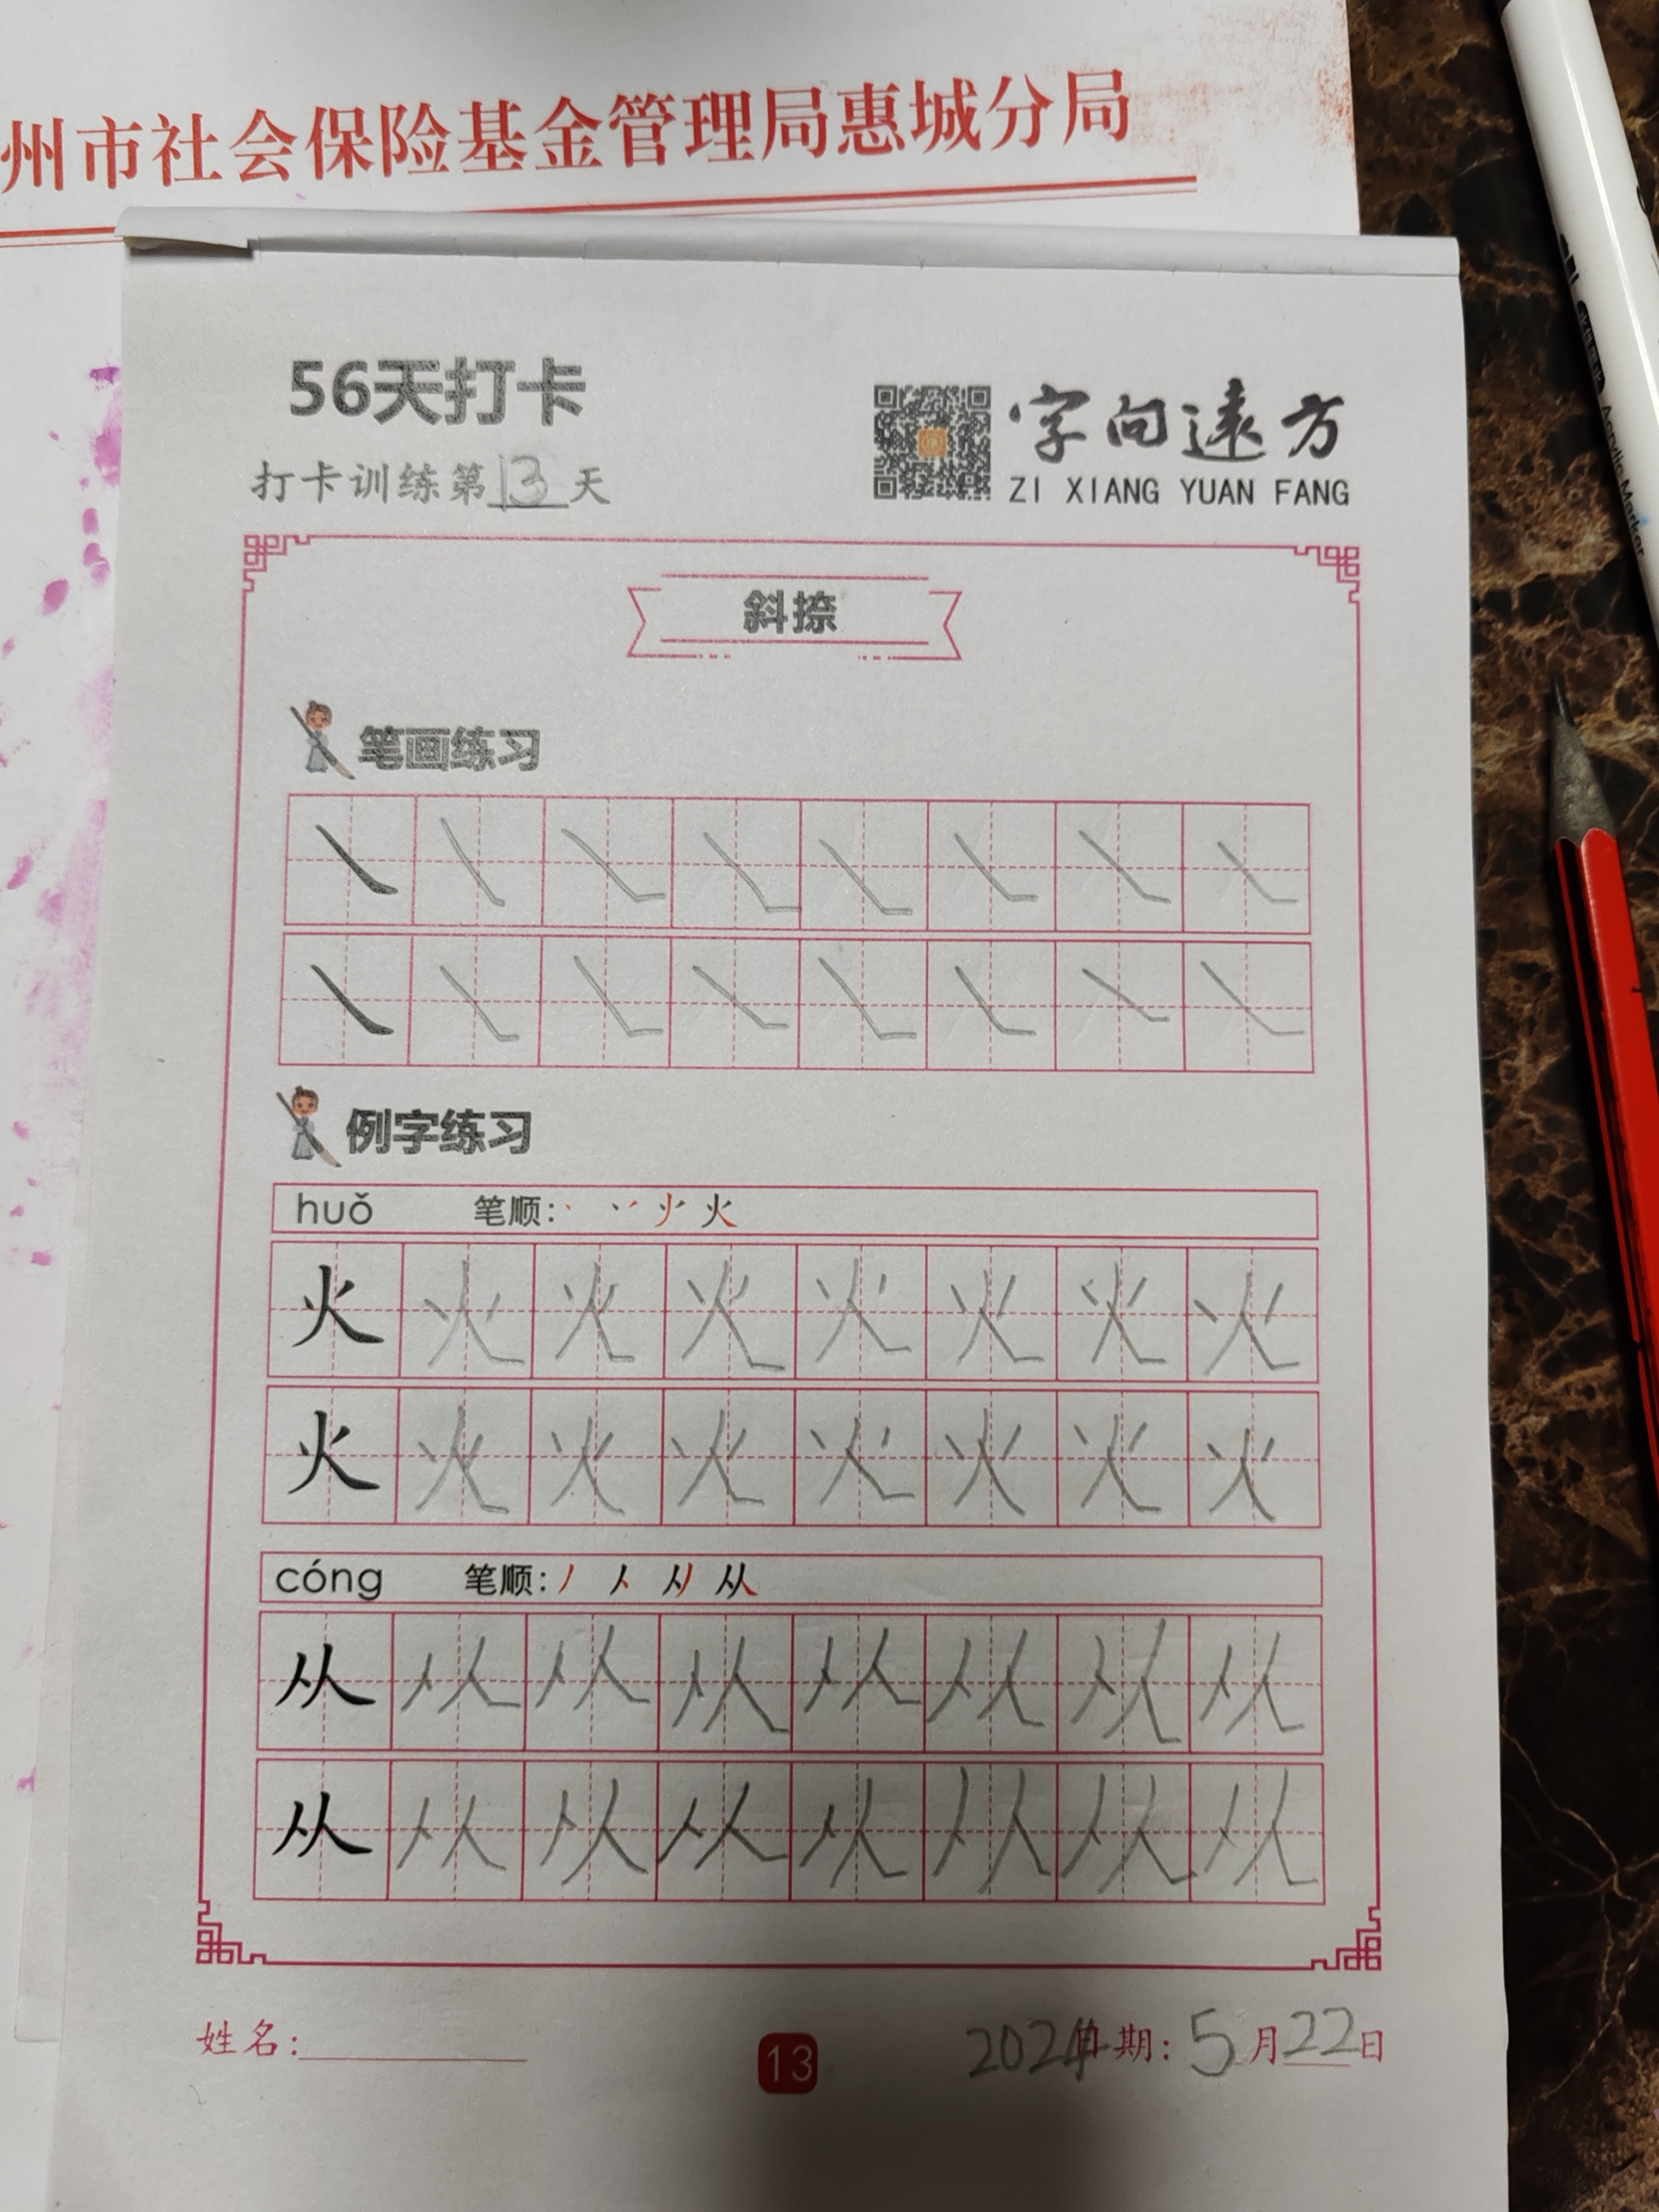 州市社会保险基金管理局惠城分局
56天打卡
打卡训练第13天
字向遠方
ZI XIANG YUAN FANG
斜捺
笔画练习
㇏ ㇏ ㇏ ㇏ ㇏ ㇏ ㇏ ㇏
㇏ ㇏ ㇏ ㇏ ㇏ ㇏ ㇏ ㇏
例字练习
huǒ 笔顺: 火
火 火 火 火 火 火 火 火
火 火 火 火 火 火 火 火
cóng 笔顺: 丿 人 从
从 从 从 从 从 从 从 从
从 从 从 从 从 从 从 从
姓名:
13
2024 日期: 5月22日
Acrylic Marker